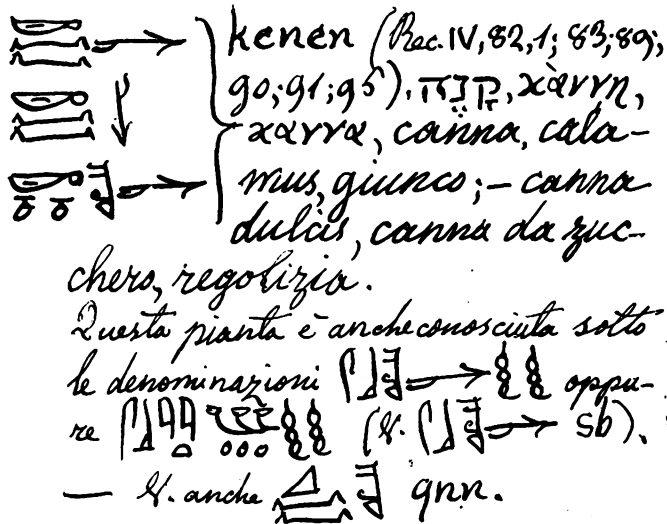 kenen (Rec. IV, 82, 1; 83, 89;
90; 91; 95). קָנֶה, κάννη,
κάννα, canna, cala-
mus, giunco; – canna
dulcis, canna da zuc-
chero, regolizia.
Questa pianta è anche conosciuta sotto
le denominazioni oppu-
re (V. sb).
— V. anche qnn.